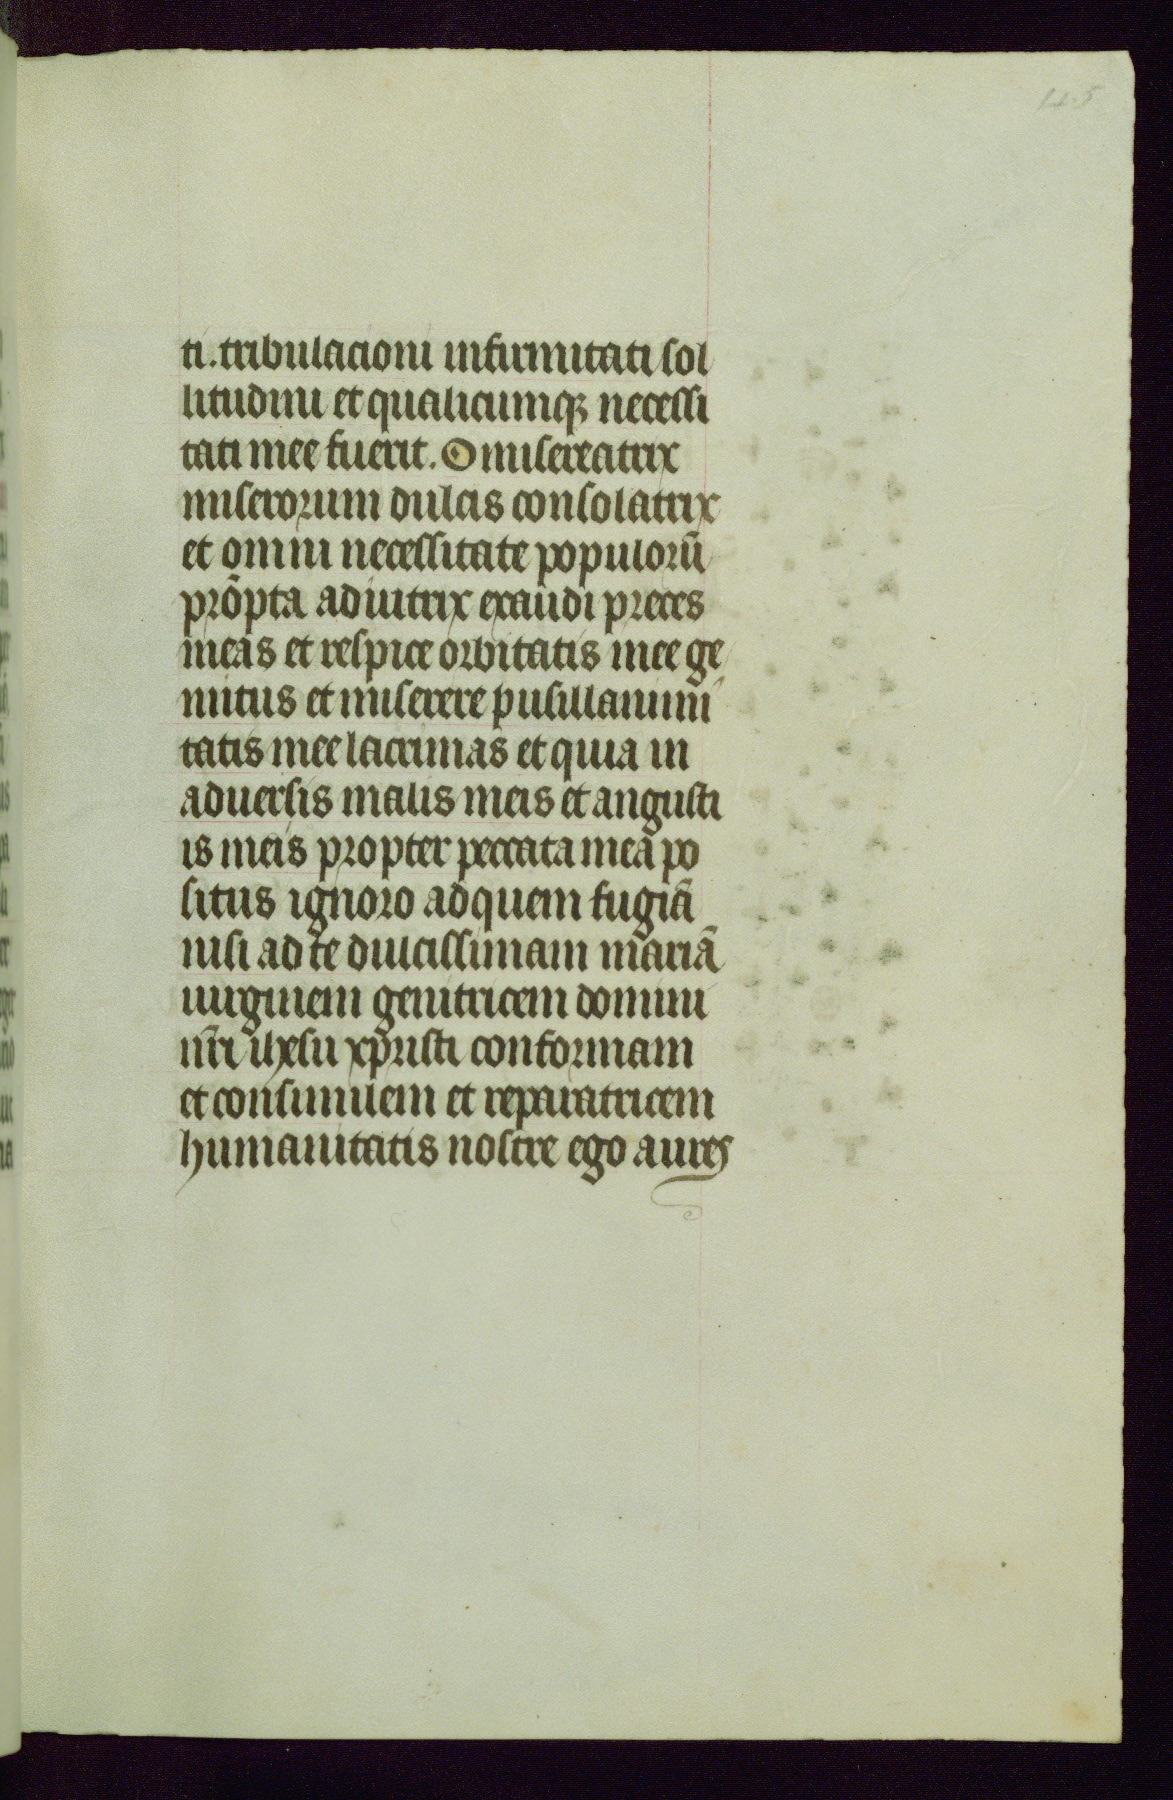 ti. tribulacioni infirmitati sol
litudini et qualicumqꝫ necessi
tati mee fuerit. O misereatrix
miserorum dulcis consolatrix
et omni necessitate populorū
prōpta adiutrix exaudi preces
meas et respice orbitatis mee ge
mitus et miserere pusillanimi
tatis mee lacrimas et quia in
aduersis malis meis et angusti
is meis propter peccata mea po
situs ignoro ad quem fugiā
nisi ad te dulcissimam mariā
uirginem genitricem domini
nr̄i ih̄esu xp̄risti conformam
et consimilem et reparatricem
humanitatis nostre ego aures